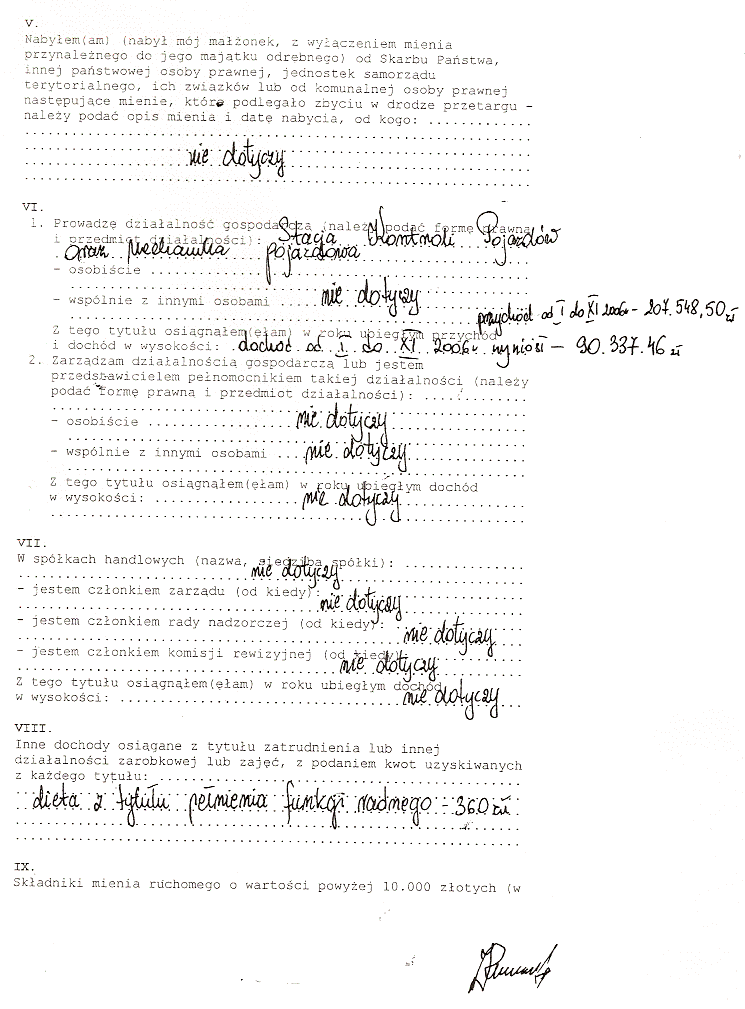 V.
Nabyłem(am) (nabył mój małżonek, z wyłączeniem mienia
przynależnego do jego majątku odrębnego) od Skarbu Państwa,
innej państwowej osoby prawnej, jednostek samorządu
terytorialnego, ich związków lub od komunalnej osoby prawnej
następujące mienie, które podlegało zbyciu w drodze przetargu -
należy podać opis mienia i datę nabycia, od kogo: .............
nie dotyczy
VI.
1. Prowadzę działalność gospodarczą (należy podać formę prawną
i przedmiot działalności): Stacja Kontroli Pojazdów
oraz Mechanika pojazdowa
- osobiście
- wspólnie z innymi osobami .... nie dotyczy
przychód od I do XI 2006r - 207.548,50 zł
Z tego tytułu osiągnąłem(ęłam) w roku ubiegłym przychód
i dochód w wysokości: dochód od I do XI 2006r wyniósł - 90.337.46 zł
2. Zarządzam działalnością gospodarczą lub jestem
przedstawicielem pełnomocnikiem takiej działalności (należy
podać formę prawną i przedmiot działalności): ............
- osobiście .................. nie dotyczy
- wspólnie z innymi osobami ... nie dotyczy
Z tego tytułu osiągnąłem(ęłam) w roku ubiegłym dochód
w wysokości: ................ nie dotyczy
VII.
W spółkach handlowych (nazwa, siedziba spółki): ..............
nie dotyczy
- jestem członkiem zarządu (od kiedy): nie dotyczy
- jestem członkiem rady nadzorczej (od kiedy): nie dotyczy
- jestem członkiem komisji rewizyjnej (od kiedy): nie dotyczy
Z tego tytułu osiągnąłem(ęłam) w roku ubiegłym dochód
w wysokości: .............................. nie dotyczy
VIII.
Inne dochody osiągane z tytułu zatrudnienia lub innej
działalności zarobkowej lub zajęć, z podaniem kwot uzyskiwanych
z każdego tytułu: ..............................
dieta z tytułu pełnienia funkcji radnego - 360 zł
IX.
Składniki mienia ruchomego o wartości powyżej 10.000 złotych (w